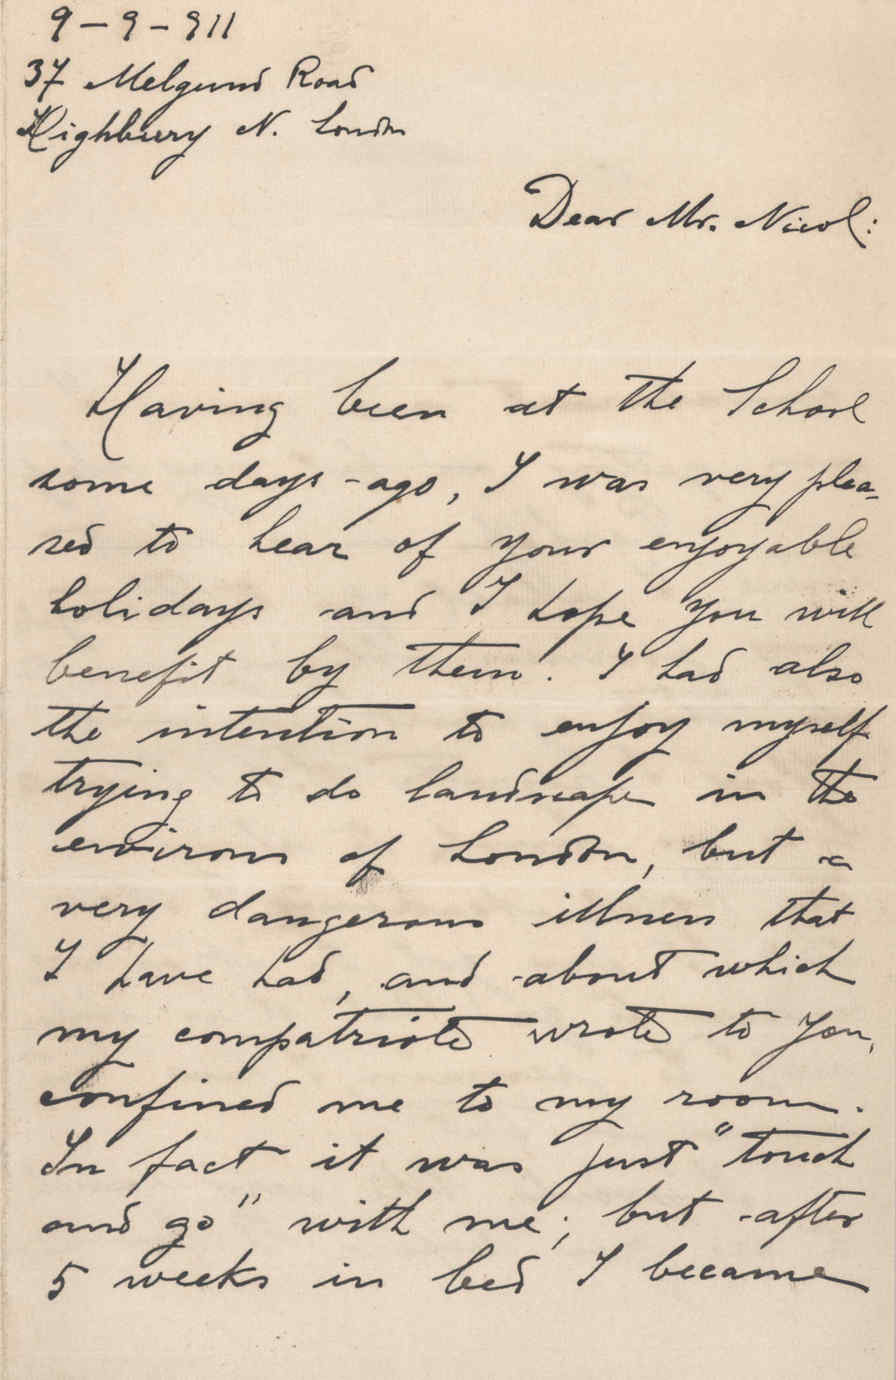 9 - 9 - 911
37 Melgund Road
Highbury N. London
Dear Mr. Nicol:
Having been at the School
some days-ago, I was very plea-
sed to hear of your enjoyable
holidays and I hope you will
benefit by them. I had also
the intention to enjoy myself
trying to do landscape in the
environs of London, but a
very dangerous illness that
I have had, and about which
my compatriote wrote to you,
confined me to my room.
In fact it was just "touch
and go" with me; but after
5 weeks in bed I became